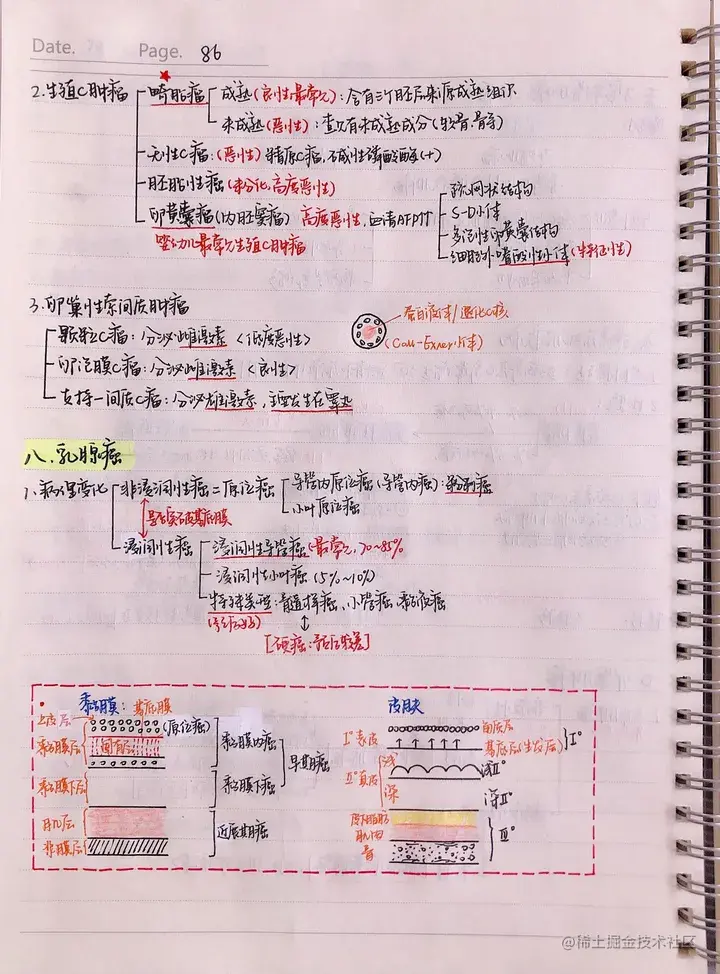 Date.
Page. 86
2.生殖C肿瘤
畸胎瘤
成熟(良性,最常见):含有三个胚层来源成熟组织
未成熟(恶性):查见有未成熟成分(软骨,骨等)
无性C瘤:(恶性)精原C瘤,碱性磷酸酶(+)
胚胎性癌(未分化,高度恶性)
卵黄囊瘤(内胚窦瘤) 高度恶性,血清AFP↑↑
婴幼儿最常见生殖C肿瘤
疏网状结构
S-D小体
多泡性卵黄囊结构
细胞外嗜酸性小体(特征性)
3.卵巢性索间质肿瘤
颗粒C瘤:分泌雌激素<低度恶性>
卵泡膜C瘤:分泌雌激素<良性>
支持-间质C瘤:分泌雄激素,主要发生在睾丸
蛋白液体/退化C核
(Call-Exner小体)
八.乳腺癌
1、病理变化
非浸润性癌=原位癌
导管内原位癌(导管内癌):粉刺癌
小叶原位癌
是否突破基底膜
浸润性癌
浸润性导管癌(最常见,70~85%
浸润性小叶癌(5%~10%)
特殊类型:髓样癌、小管癌、黏液癌
(预后较好)
[硬癌:预后较差]
黏膜:基底膜
上皮层
(原位癌)
黏膜层
固有层
黏膜下层
肌层
外膜层
黏膜内癌
黏膜下癌
早期癌
进展期癌
皮肤
角质层
Ⅰ°表皮
基底层(生发层)
Ⅰ°
浅
Ⅱ°真皮
浅Ⅱ°
深
深Ⅱ°
皮下脂肪
肌肉
骨
Ⅲ°
@稀土掘金技术社区